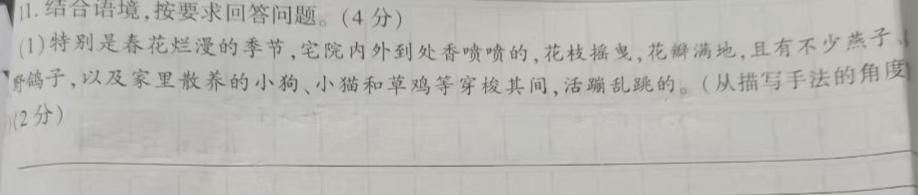 11. 结合语境,按要求回答问题。(4 分)
(1)特别是春花烂漫的季节,宅院内外到处香喷喷的,花枝摇曳,花瓣满地,且有不少燕子、
野鸽子,以及家里散养的小狗、小猫和草鸡等穿梭其间,活蹦乱跳的。(从描写手法的角度
)(2 分)